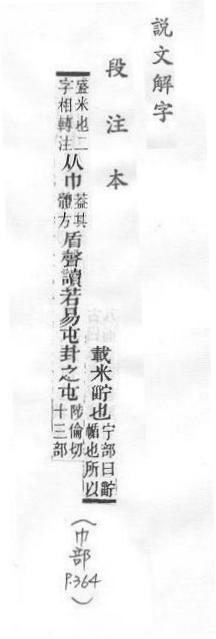 說文解字
段注本
載米也宁部曰㡒也所以
盛米也二字相轉注从巾葢其體方盾聲讀若易屯卦之屯陟倫切十三部
(巾部 P.364)